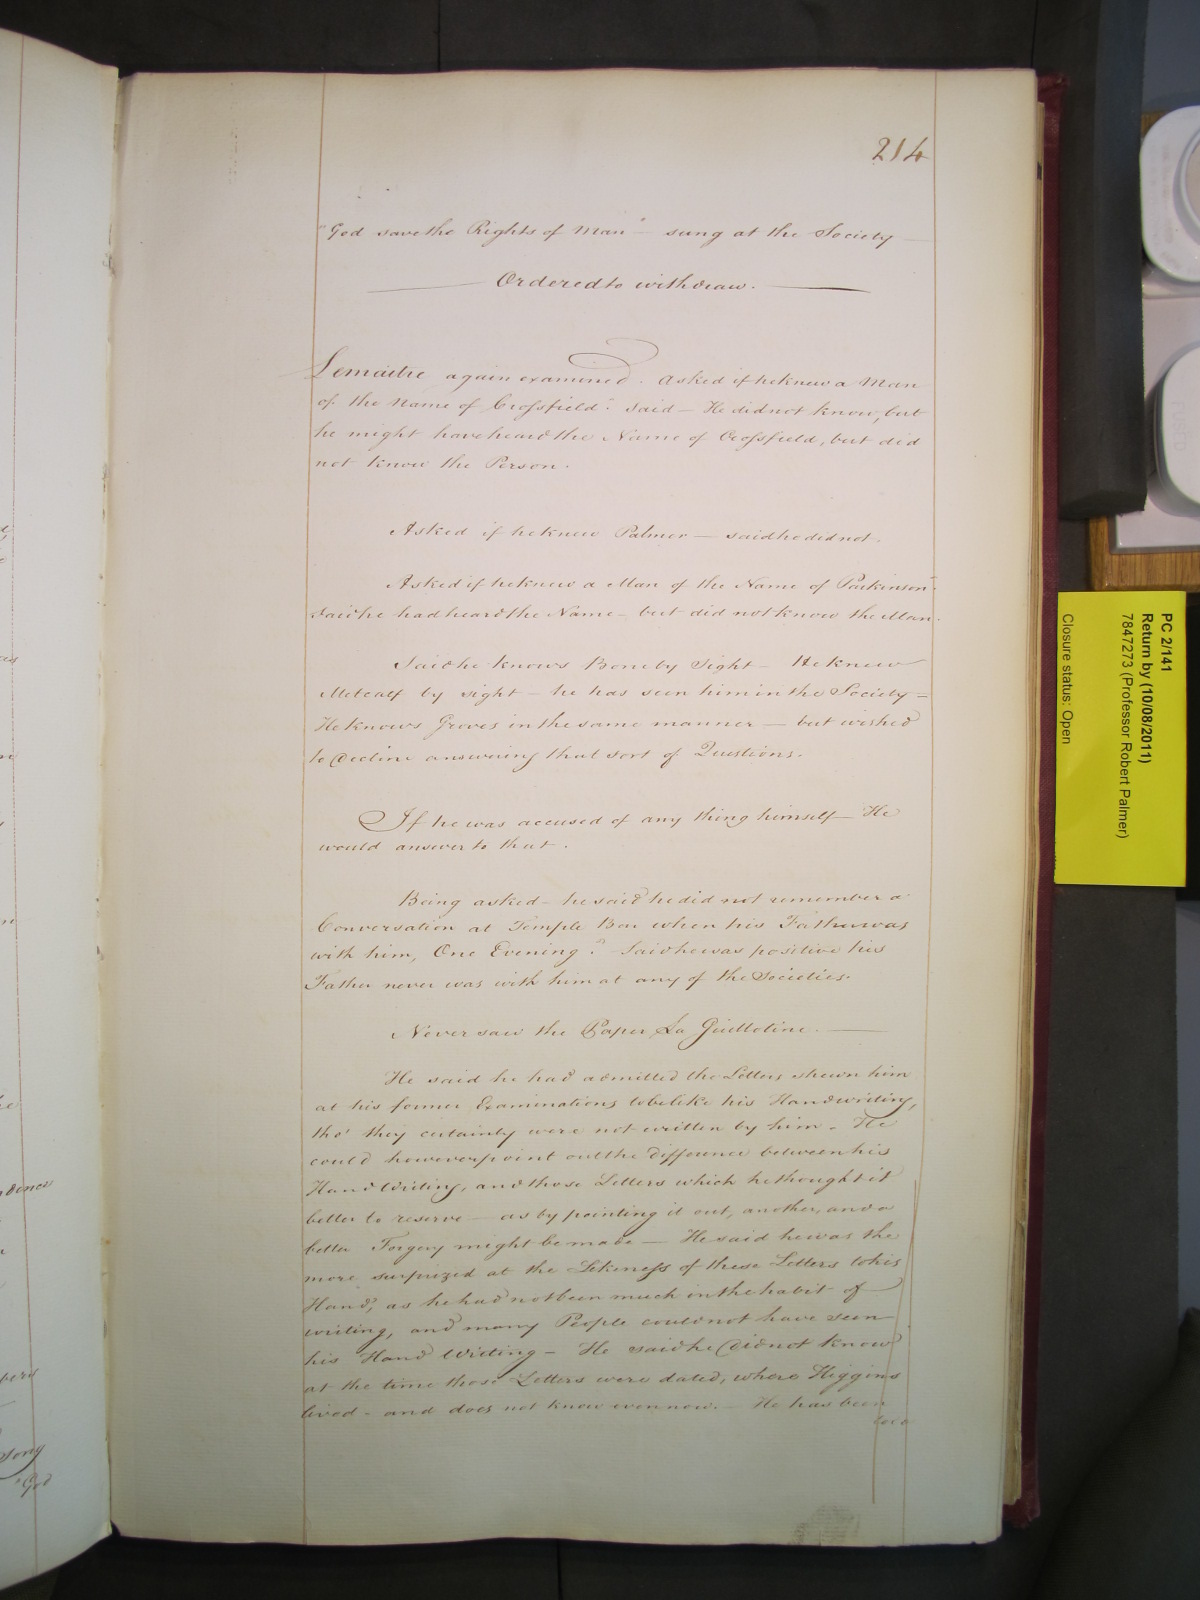 214
"God save the Rights of Man" — sung at the Society —
Ordered to withdraw.
Lemaitre again examined. Asked if he knew a Man
of the Name of Crossfield? Said — He did not know, but
he might have heard the Name of Crossfield, but did
not know the Person.
Asked if he knew Palmer — said he did not.
Asked if he knew a Man of the Name of Parkinson
Said he had heard the Name — but did not know the Man.
Said he knows Bone by Sight — He knew
Metcalf by sight — he has seen him in the Society =
He knows Groves in the same manner — but wished
to decline answering that sort of Questions.
If he was accused of any thing himself — He
would answer to that.
Being asked — he said he did not remember a
Conversation at Temple Bar when his Father was
with him, One Evening? — Said he was positive his
Father never was with him at any of the Societies.
Never saw the Paper La Guillotine.
He said he had admitted the Letters shewn him
at his former Examinations to be like his Handwriting,
tho' they certainly were not written by him — He
could however point out the difference between his
Hand Writing, and those Letters which he thought it
better to reserve — as by pointing it out, another, and a
better Forgery might be made — He said he was the
more surprized at the Likeness of these Letters to his
Hand, as he had not been much in the habit of
writing, and many People could not have seen
his Hand Writing — He said he did not know
at the time those Letters were dated, where Higgins
lived — and does not know even now. — He has been
PC 2/141
Return by (10/08/2011)
7847273 (Professor Robert Palmer)
Closure status: Open
song
"God